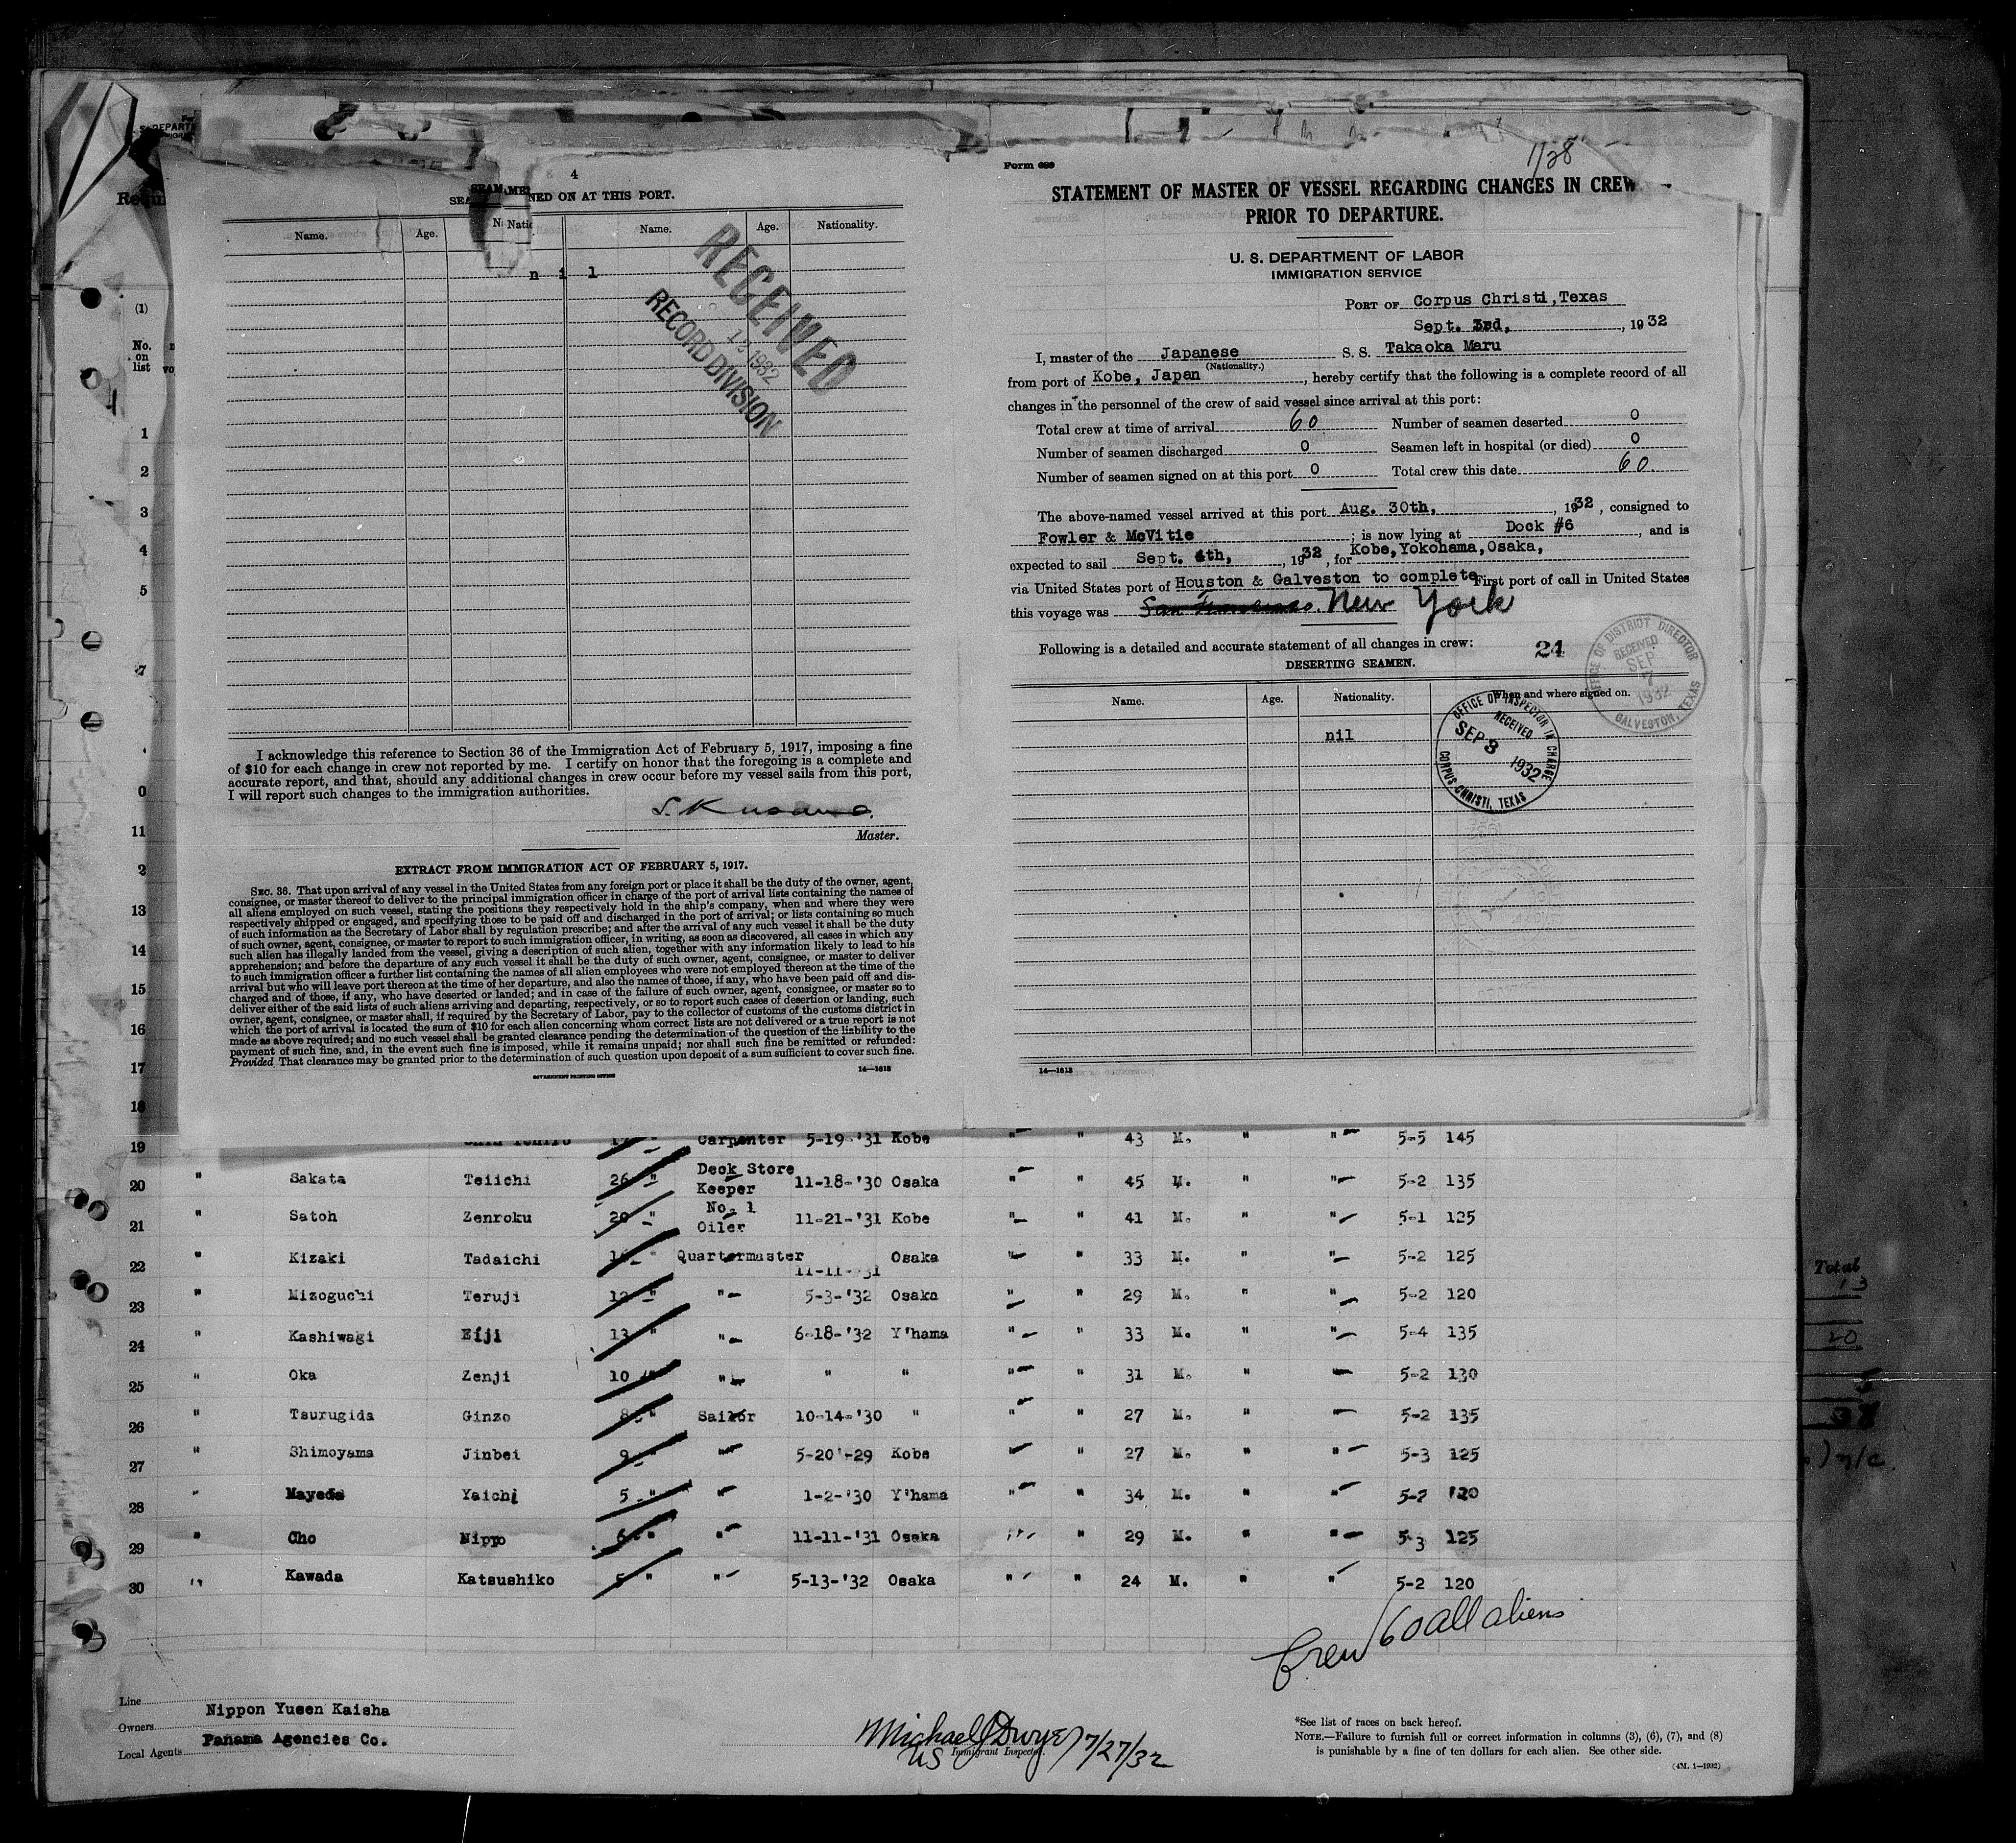 4
SEAMEN SIGNED ON AT THIS PORT.
Name. Age. Name. Age. Nationality.
n i l
RECEIVED
1932
RECORD DIVISION
I acknowledge this reference to Section 36 of the Immigration Act of February 5, 1917, imposing a fine
of $10 for each change in crew not reported by me. I certify on honor that the foregoing is a complete and
accurate report, and that, should any additional changes in crew occur before my vessel sails from this port,
I will report such changes to the immigration authorities.
Master.
EXTRACT FROM IMMIGRATION ACT OF FEBRUARY 5, 1917.
SEC. 36. That upon arrival of any vessel in the United States from any foreign port or place it shall be the duty of the owner, agent,
consignee, or master thereof to deliver to the principal immigration officer in charge of the port of arrival lists containing the names of
all aliens employed on such vessel, stating the positions they respectively hold in the ship's company, when and where they were
respectively shipped or engaged, and specifying those to be paid off and discharged in the port of arrival; or lists containing so much
of such information as the Secretary of Labor shall by regulation prescribe; and after the arrival of any such vessel it shall be the duty
of such owner, agent, consignee, or master to report to such immigration officer, in writing, as soon as discovered, all cases in which any
such alien has illegally landed from the vessel, giving a description of such alien, together with any information likely to lead to his
apprehension; and before the departure of any such vessel it shall be the duty of such owner, agent, consignee, or master to deliver
to such immigration officer a further list containing the names of all alien employees who were not employed thereon at the time of the
arrival but who will leave port thereon at the time of her departure, and also the names of those, if any, who have been paid off and dis-
charged and of those, if any, who have deserted or landed; and in case of the failure of such owner, agent, consignee, or master so to
deliver either of the said lists of such aliens arriving and departing, respectively, or so to report such cases of desertion or landing, such
owner, agent, consignee, or master shall, if required by the Secretary of Labor, pay to the collector of customs of the customs district in
which the port of arrival is located the sum of $10 for each alien concerning whom correct lists are not delivered or a true report is not
made as above required; and no such vessel shall be granted clearance pending the determination of the question of the liability to the
payment of such fine, and, in the event such fine is imposed, while it remains unpaid; nor shall such fine be remitted or refunded:
Provided That clearance may be granted prior to the determination of such question upon deposit of a sum sufficient to cover such fine.
GOVERNMENT PRINTING OFFICE 14—1613
Form 689
1/28
STATEMENT OF MASTER OF VESSEL REGARDING CHANGES IN CREW
PRIOR TO DEPARTURE.
U. S. DEPARTMENT OF LABOR
IMMIGRATION SERVICE
PORT OF Corpus Christi, Texas
Sept. 3rd, , 1932
I, master of the Japanese S. S. Takaoka Maru
(Nationality.)
from port of Kobe, Japan , hereby certify that the following is a complete record of all
changes in the personnel of the crew of said vessel since arrival at this port:
Total crew at time of arrival 60 Number of seamen deserted 0
Number of seamen discharged 0 Seamen left in hospital (or died) 0
Number of seamen signed on at this port 0 Total crew this date 60
The above-named vessel arrived at this port Aug. 30th, , 1932 , consigned to
Fowler & McVitie ; is now lying at Dock #6 , and is
expected to sail Sept. 4th, , 1932 , for Kobe, Yokohama, Osaka,
via United States port of Houston & Galveston to complete First port of call in United States
this voyage was San Francisco. New York
Following is a detailed and accurate statement of all changes in crew: 24
DESERTING SEAMEN.
Name. Age. Nationality. When and where signed on.
nil
OFFICE OF DISTRICT DIRECTOR
RECEIVED
SEP
7
1932
GALVESTON, TEXAS
OFFICE OF INSPECTOR IN CHARGE
RECEIVED
SEP 3 1932
CORPUS CHRISTI, TEXAS
14—1613
(1)
No. on list
1
2
3
4
5
7
0
11
2
13
14
15
16
17
18
19 Carpenter 5-19-'31 Kobe " " 43 M. " " 5-5 145
20 " Sakata Teiichi 26 " Deck Store Keeper 11-18-'30 Osaka " " 45 M. " " 5-2 135
21 " Satoh Zenroku 20 " No. 1 Oiler 11-21-'31 Kobe " " 41 M. " " 5-1 125
22 " Kizaki Tadaichi " Quartermaster 11-11-'31 Osaka " " 33 M. " " 5-2 125
23 " Mizoguchi Teruji 12 " " 5-3-'32 Osaka " " 29 M. " " 5-2 120
24 " Kashiwagi Eiji 13 " " 6-18-'32 Y'hama " " 33 M. " " 5-4 135
25 " Oka Zenji 10 " " " " " " 31 M. " " 5-2 130
26 " Tsurugida Ginzo 8 " Sailor 10-14-'30 " " " 27 M. " " 5-2 135
27 " Shimoyama Jinbei 9 " " 5-20'-29 Kobe " " 27 M. " " 5-3 125
28 " Mayeda Yaichi 5 " " 1-2-'30 Y'hama " " 34 M. " " 5-2 120
29 " Cho Nippo 6 " " 11-11-'31 Osaka " " 29 M. " " 5-3 125
30 " Kawada Katsushiko 5 " " 5-13-'32 Osaka " " 24 M. " " 5-2 120
Crew 60 all aliens
Line
Owners Nippon Yusen Kaisha
Local Agents Panama Agencies Co.
Michael J Dwyer 7/27/32
US Immigrant Inspector.
*See list of races on back hereof.
NOTE.—Failure to furnish full or correct information in columns (3), (6), (7), and (8)
is punishable by a fine of ten dollars for each alien. See other side.
(4M. 1—1932)
Total
13
20
38